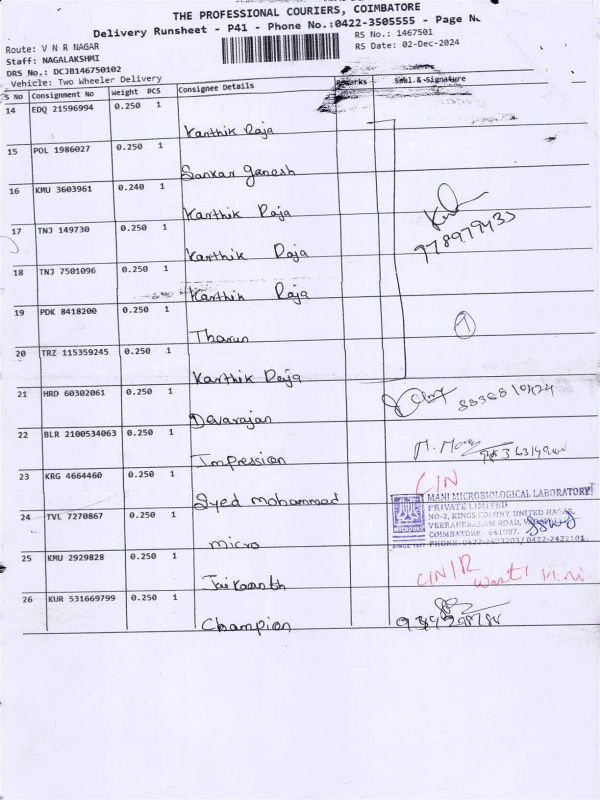 THE PROFESSIONAL COURIERS, COIMBATORE
Delivery Runsheet - P41 - Phone No.:0422-3505555 - Page
Route: V N R NAGAR
RS No.: 1467501
Staff: NAGALAKSHMI
RS Date: 02-Dec-2024
DRS No.: DCJB146750102
Vehicle: Two Wheeler Delivery
S No Consignment No Weight PCS Consignee Details Remarks Seal & Signature
14 EDQ 21596994 0.250 1
Karthik Raja
15 POL 1986027 0.250 1
Sankar Ganesh
16 KMU 3603961 0.240 1
Karthik Raja
17 TNJ 149730 0.250 1
Karthik Raja
18 TNJ 7501096 0.250 1
Karthik Raja
19 PDK 8418200 0.250 1
Tharun
1
20 TRZ 115359245 0.250 1
Karthik Raja
21 HRD 60302061 0.250 1
Devarajan
22 BLR 2100534063 0.250 1
Impression
23 KRG 4664460 0.250 1
Syed mohammad
CIN
24 TVL 7270867 0.250 1
micro
MANI MICROBIOLOGICAL LABORATORY
PRIVATE LIMITED
NO-2, KINGS COLONY, UNITED NAGAR
VEERAKERALAM ROAD,
COIMBATORE 641007.
PHONE: 0422-2423203/ 0422-2422101
25 KMU 2929828 0.250 1
CIN/R
26 KUR 531669799 0.250 1
Champion